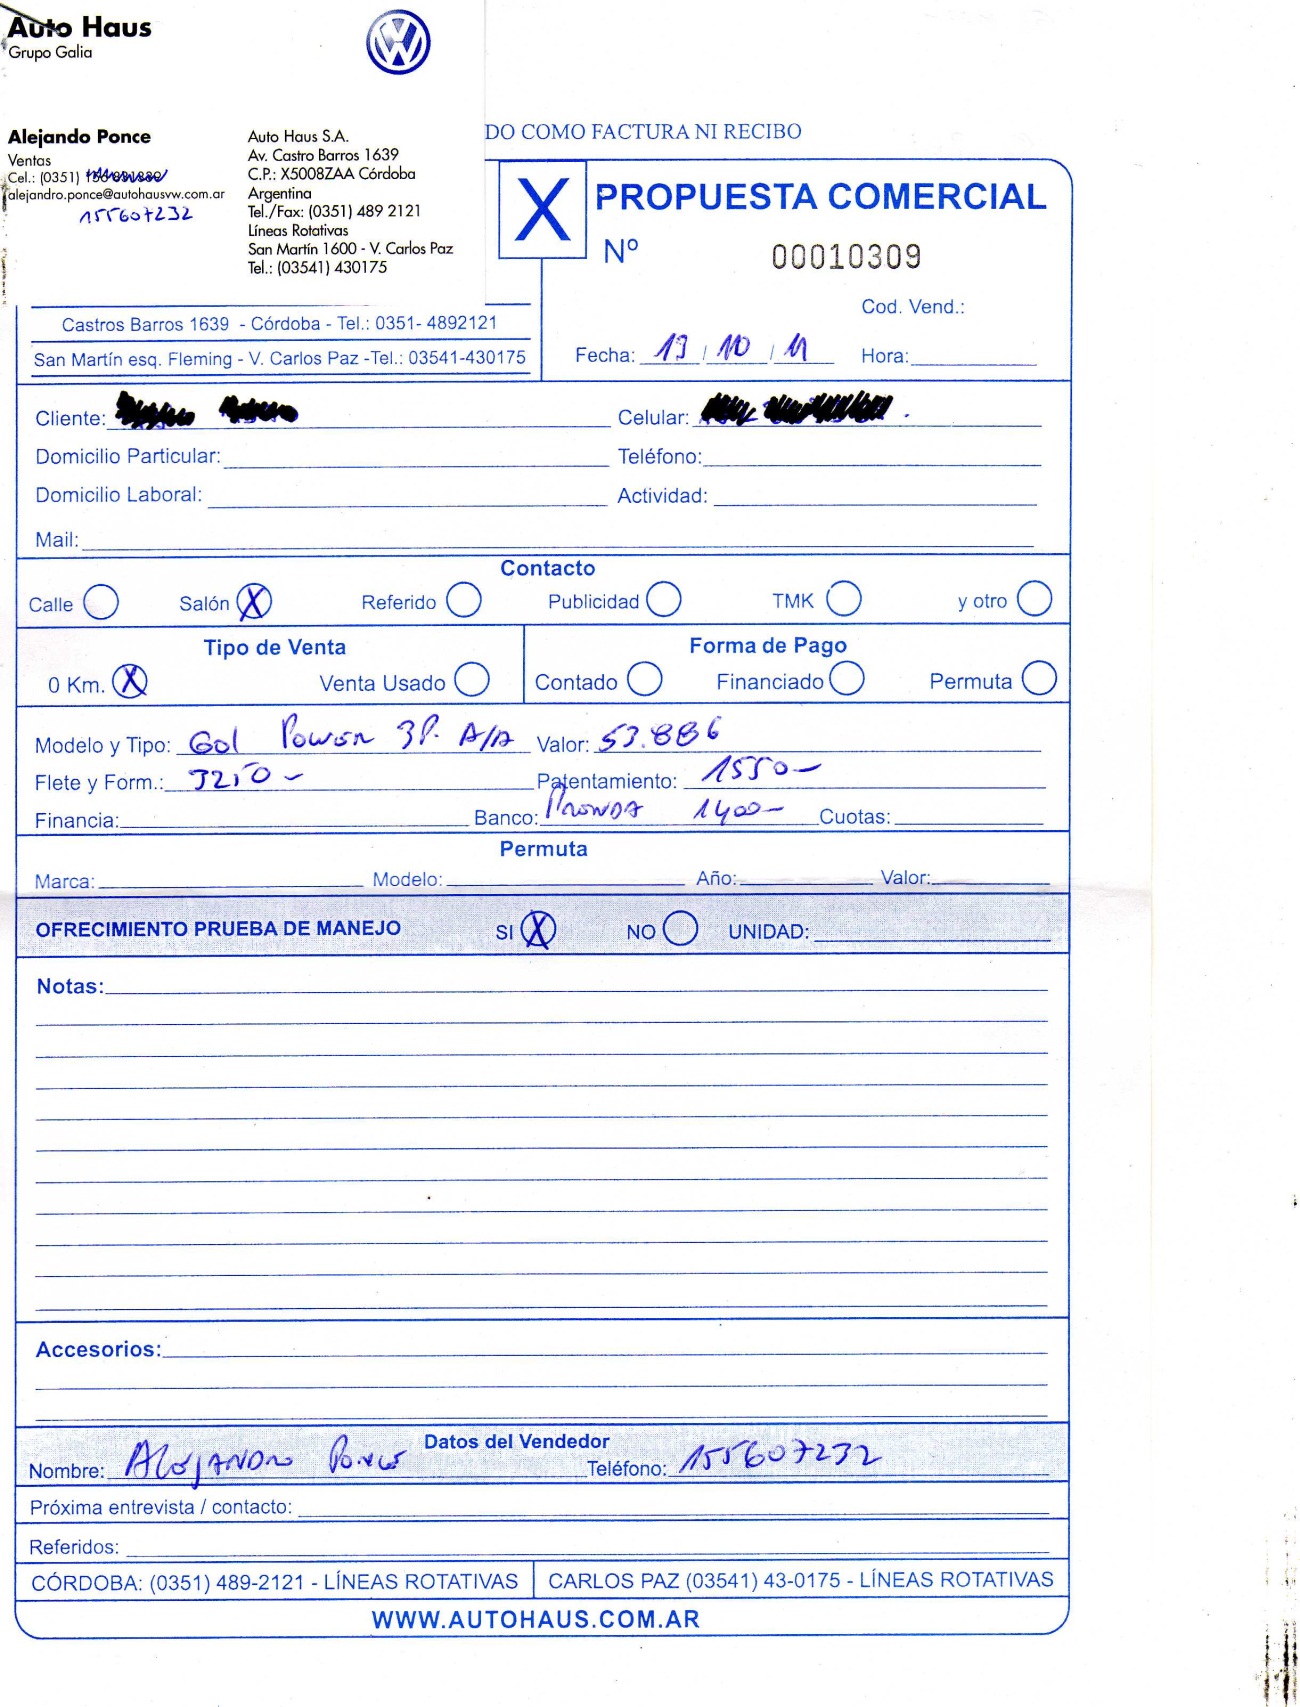 Auto Haus
Grupo Galia
Alejando Ponce
Ventas
Cel.: (0351)
alejandro.ponce@autohausvw.com.ar
155607232
Auto Haus S.A.
Av. Castro Barros 1639
C.P.: X5008ZAA Córdoba
Argentina
Tel./Fax: (0351) 489 2121
Líneas Rotativas
San Martín 1600 - V. Carlos Paz
Tel.: (03541) 430175
DO COMO FACTURA NI RECIBO
X PROPUESTA COMERCIAL
Nº 00010309
Cod. Vend.:
Castros Barros 1639 - Córdoba - Tel.: 0351- 4892121
San Martín esq. Fleming - V. Carlos Paz -Tel.: 03541-430175
Fecha: 19 / 10 / 11 Hora:
Cliente: Celular:
Domicilio Particular: Teléfono:
Domicilio Laboral: Actividad:
Mail:
Contacto
Calle Salón X Referido Publicidad TMK y otro
Tipo de Venta Forma de Pago
0 Km. X Venta Usado Contado Financiado Permuta
Modelo y Tipo: Gol Power 3P. A/A Valor: 53.886
Flete y Form.: 3250- Patentamiento: 1550-
Financia: Banco: Prenda 1400- Cuotas:
Permuta
Marca: Modelo: Año: Valor:
OFRECIMIENTO PRUEBA DE MANEJO SI X NO UNIDAD:
Notas:
Accesorios:
Datos del Vendedor
Nombre: Alejandro Ponce Teléfono: 155607232
Próxima entrevista / contacto:
Referidos:
CÓRDOBA: (0351) 489-2121 - LÍNEAS ROTATIVAS CARLOS PAZ (03541) 43-0175 - LÍNEAS ROTATIVAS
WWW.AUTOHAUS.COM.AR